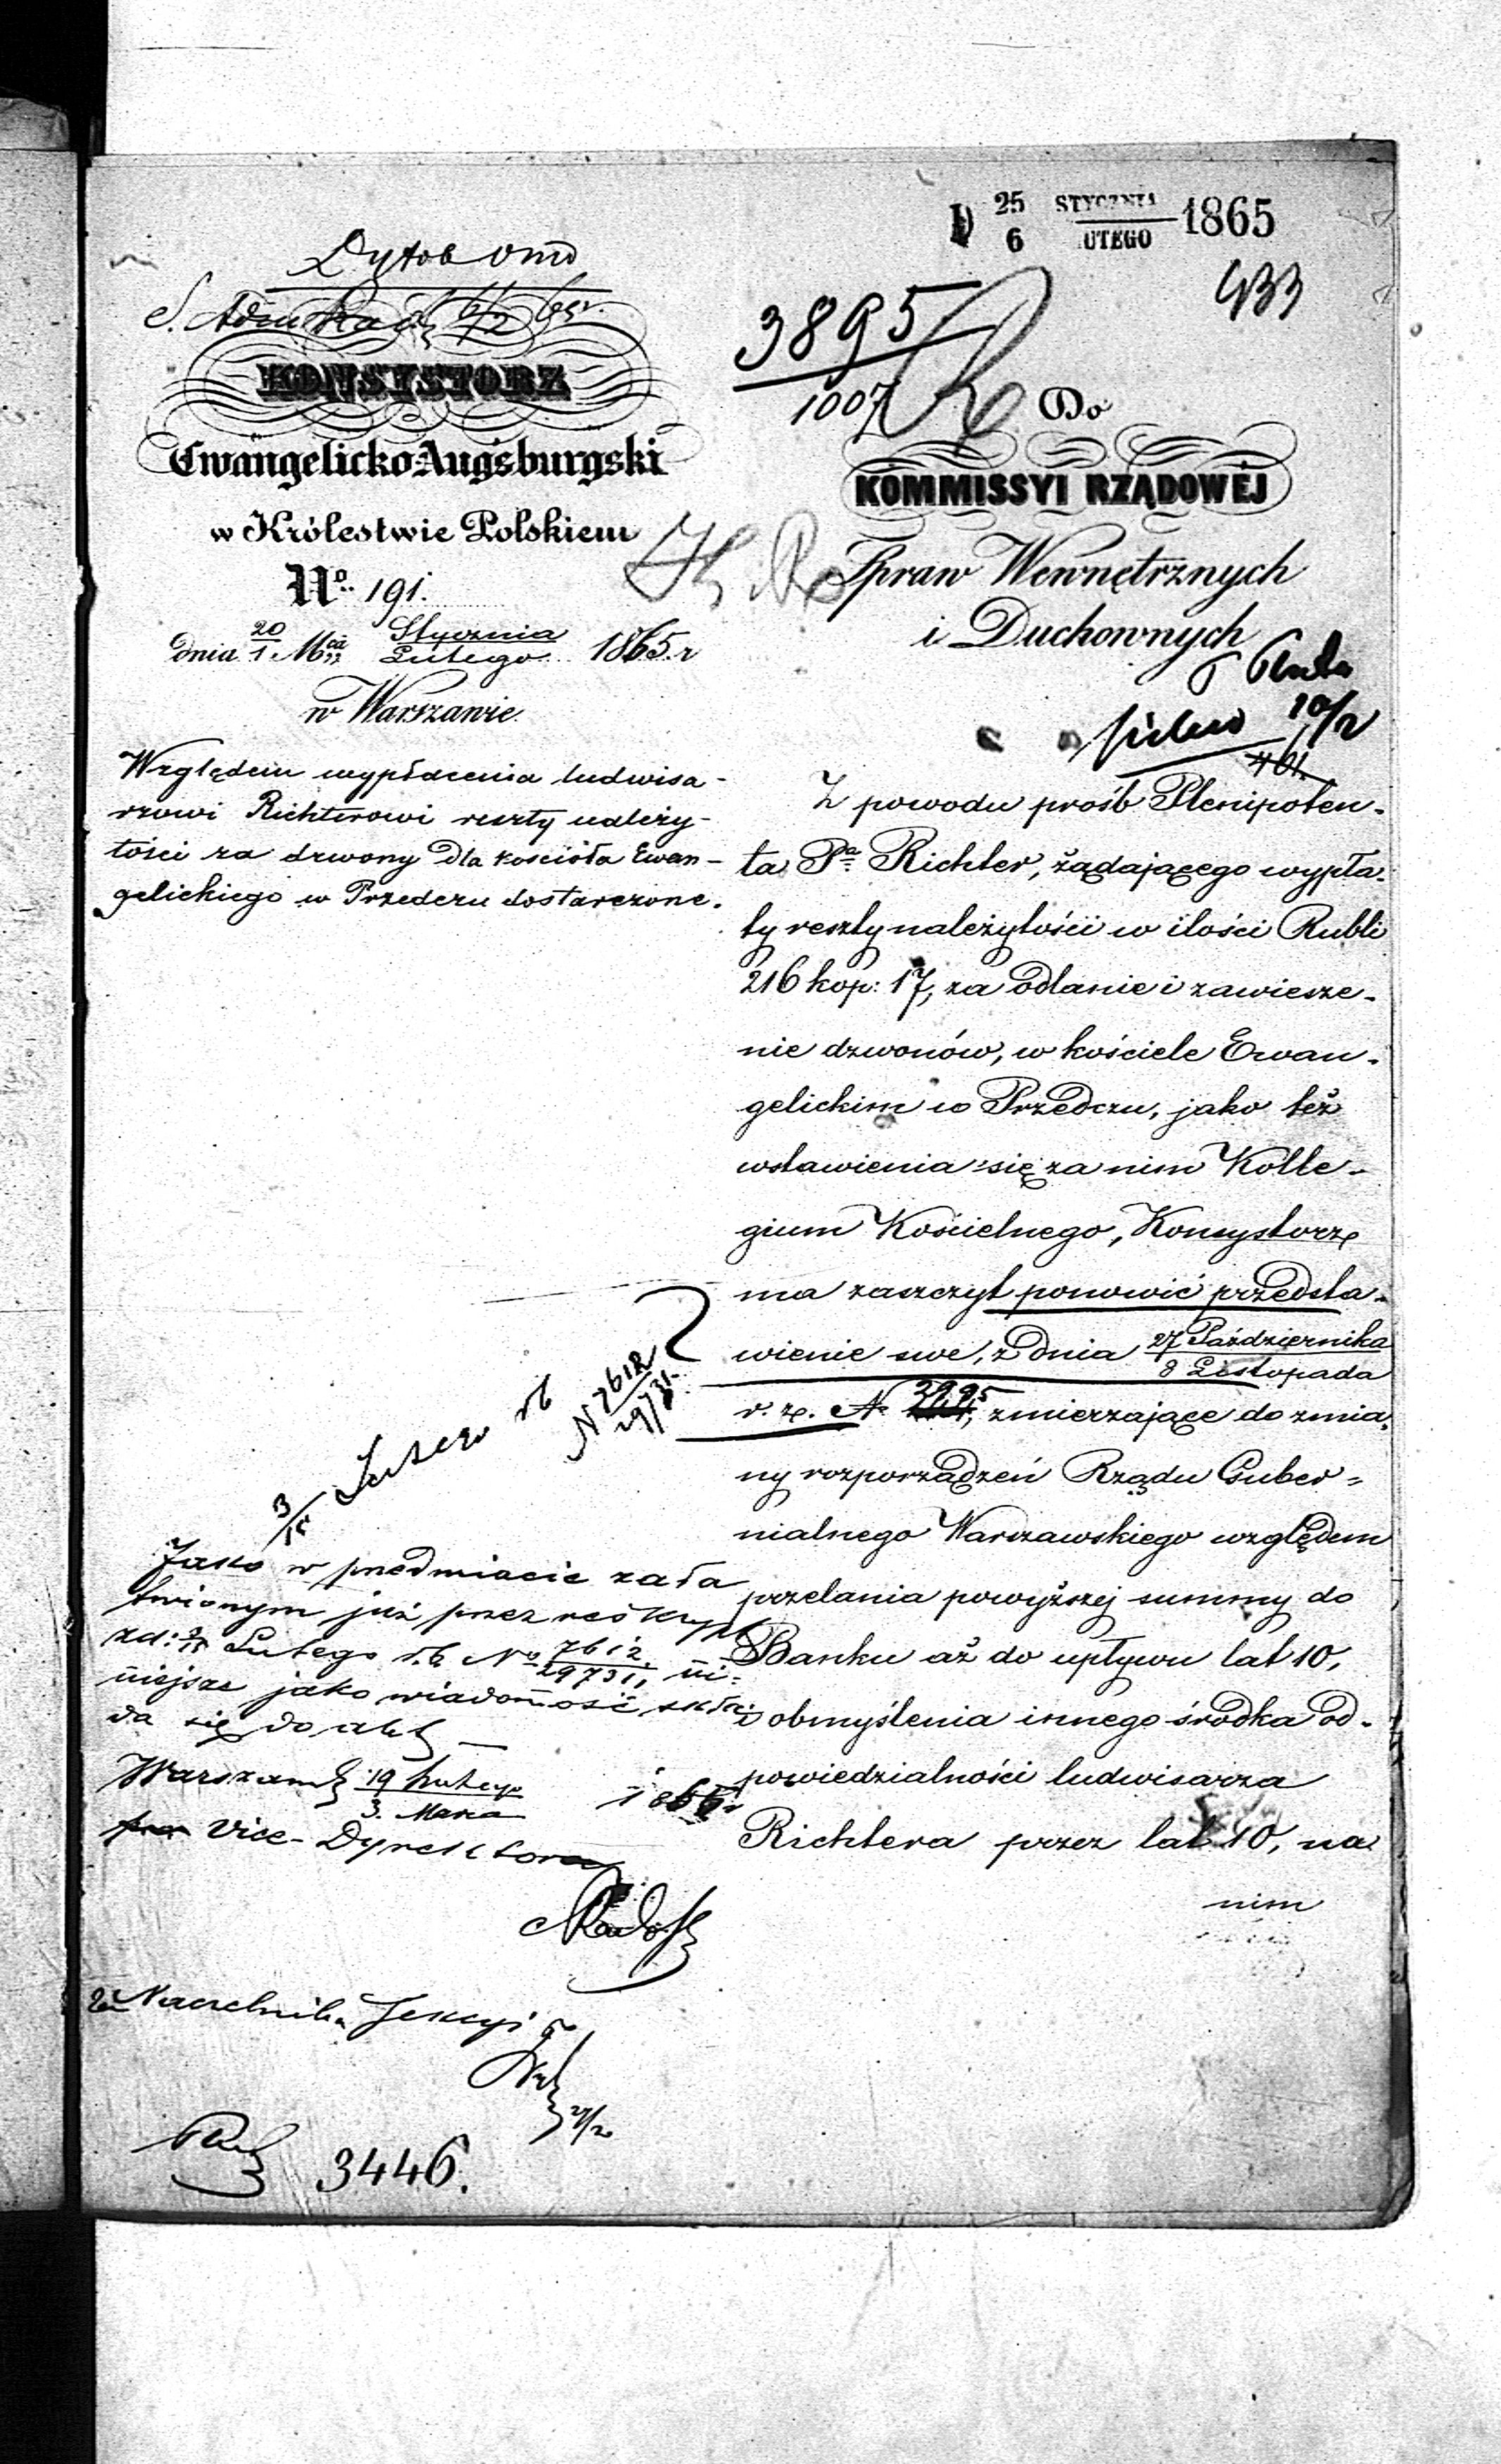 25 STYCZNIA
6 LUTEGO 1865
433
3895
1007
KONSYSTORZ
Ewangelicko-Augsburgski
w Królestwie Polskiem
No. 191.
dnia 20/1 Mca Stycznia/Lutego 1865 r
w Warszawie.
Względem wypłacenia ludwisa-
rzowi Richterowi reszty należy-
tości za dzwony dla kościoła Ewan-
gelickiego w Przedczu dostarczone.
Do
KOMMISSYI RZĄDOWÉJ
Spraw Wewnętrznych
i Duchownych
10/2
Z powodu prośb Plenipoten-
ta Pa Richter, żądającego wypła-
ty reszty należytości w ilości Rubli
216 kop: 17, za odlanie i zawiesze-
nie dzwonów, w kościele Ewan-
gelickim w Przedczu, jako też
wstawienia się za nim Kolle-
gium Kościelnego, Konsystorz
ma zaszczyt ponowić przedsta-
wienie swe, z dnia 27 Października/8 Listopada
r. z. N 3995, zmierzające do zmia-
ny rozporządzeń Rządu Guber-
nialnego Warszawskiego względem
przelania powyższej summy do
Banku aż do upływu lat 10,
i obmyślenia innego środka od-
powiedzialności ludwisarza
Richtera przez lat 10, na
nim
N 7612/29731
3/15 Lutego rb
Jako w przedmiocie zała
twionym już przez reskrypt
zd: 3/15 Lutego r.b. No 7612/29731, ni-
niejsze jako wiadomość skła-
da się do akt
Warszawa 19 Lutego/3. Marca 1865 r
Vice-Dyrektora
za Naczelnika Sekcyi
27/2
3446.